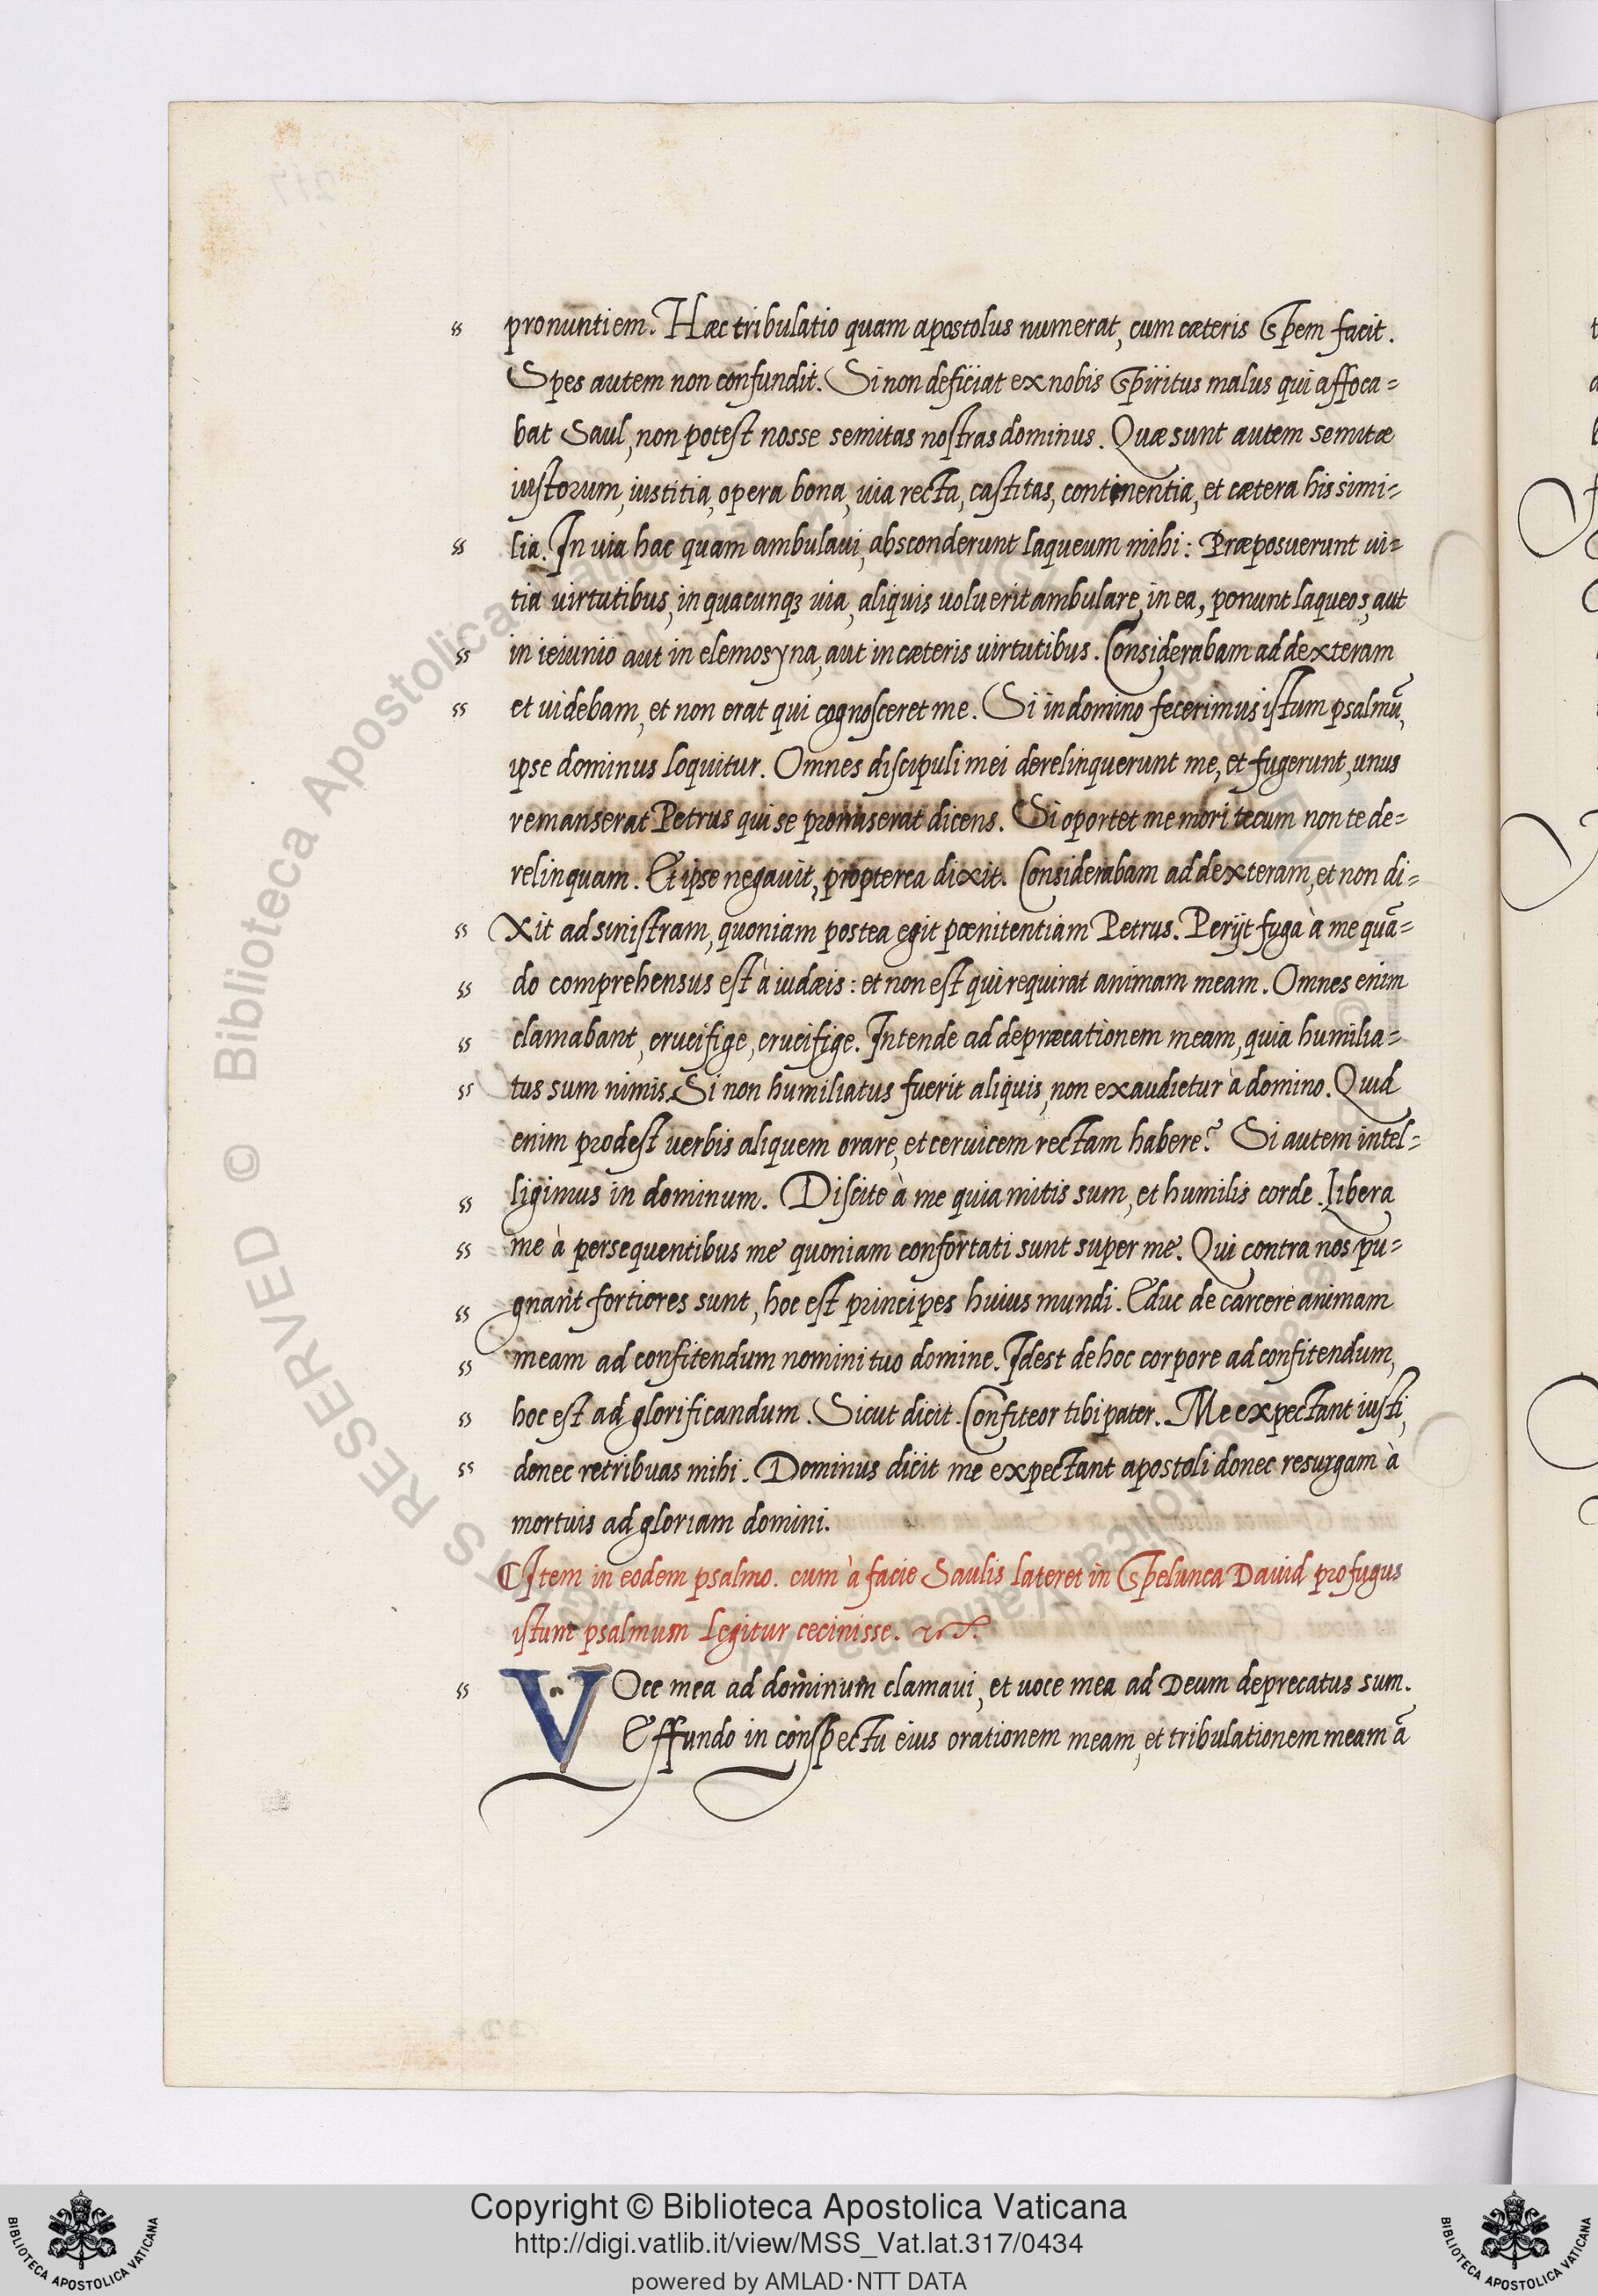 pronuntiem. Hæc tribulatio quam apostolus numerat, cum cæteris spem facit.
Spes autem non confundit. Si non deficiat ex nobis spiritus malus qui affoca=
bat Saul, non potest nosse semitas nostras dominus. Quæ sunt autem semitæ
iustorum, iustitia, opera bona, uia recta, castitas, continentia, et cætera his simi=
lia. In uia hac quam ambulaui, absconderunt laqueum mihi: Præposuerunt ui=
tia uirtutibus, in quacunqꝫ uia, aliquis uoluerit ambulare, in ea, ponunt laqueos, aut
in ieiunio aut in elemosyna, aut in cæteris uirtutibus. Considerabam ad dexteram
et uidebam, et non erat qui cognosceret me. Si in domino fecerimus istum psalmū,
ipse dominus loquitur. Omnes discipuli mei derelinquerunt me, et fugerunt, unus
remanserat Petrus qui se promiserat dicens. Si oportet me mori tecum non te de=
relinquam. Et ipse negauit, propterea dixit. Considerabam ad dexteram, et non di=
xit ad sinistram, quoniam postea egit pœnitentiam Petrus. Perijt fuga à me quā=
do comprehensus est à iudæis: et non est qui requirat animam meam. Omnes enim
clamabant, crucifige, crucifige. Intende ad depræcationem meam, quia humilia=
tus sum nimis. Si non humiliatus fuerit aliquis, non exaudietur à domino. Quid
enim prodest uerbis aliquem orare, et ceruicem rectam habere? Si autem intel=
ligimus in dominum. Discite à me quia mitis sum, et humilis corde. Libera
me à persequentibus me quoniam confortati sunt super me. Qui contra nos pu=
gnant fortiores sunt, hoc est principes huius mundi. Educ de carcere animam
meam ad confitendum nomini tuo domine. Idest de hoc corpore ad confitendum,
hoc est ad glorificandum. Sicut dicit. Confiteor tibi pater. Me expectant iusti,
donec retribuas mihi. Dominus dicit me expectant apostoli donec resurgam à
mortuis ad gloriam domini.
Item in eodem psalmo. cum à facie Saulis lateret in spelunca Dauid profugus
istum psalmum legitur cecinisse.
VOce mea ad dominum clamaui, et uoce mea ad Deum deprecatus sum.
Effundo in conspectu eius orationem meam, et tribulationem meam ā
© Biblioteca Apostolica Vaticana
Copyright © Biblioteca Apostolica Vaticana
http://digi.vatlib.it/view/MSS_Vat.lat.317/0434
powered by AMLAD·NTT DATA
BIBLIOTECA APOSTOLICA VATICANA
BIBLIOTECA APOSTOLICA VATICANA